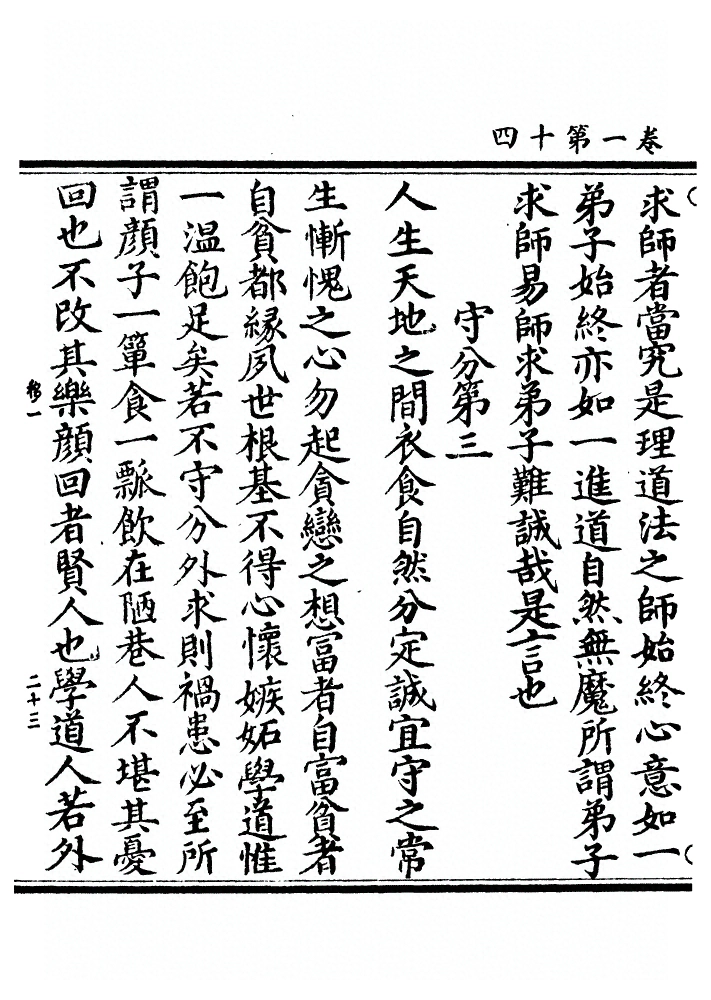 卷一第十四
求師者當究是理道法之師始終心意如一
弟子始終亦如一進道自然無魔所謂弟子
求師易師求弟子難誠哉是言也
守分第三
人生天地之間衣食自然分定誠宜守之常
生慚愧之心勿起貪戀之想富者自富貧者
自貧都緣夙世根基不得心懷嫉妬學道惟
一温飽足矣若不守分外求則禍患必至所
謂顔子一簞食一瓢飲在陋巷人不堪其憂
回也不改其樂顔回者賢人也學道人若外
二十三